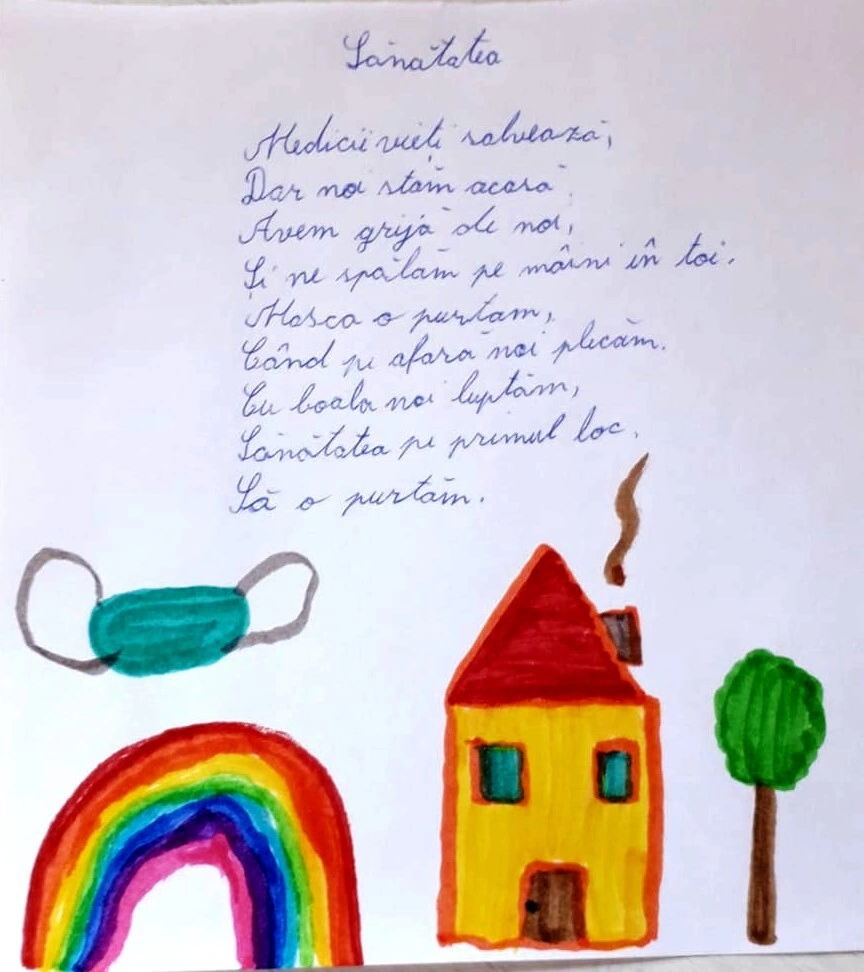 Sănătatea
Medicii vieți salvează,
Dar noi stăm acasă.
Avem grijă de noi,
Și ne spălăm pe mâini în toi.
Masca o purtăm,
Când pe afară noi plecăm.
Cu boala noi luptăm,
Sănătatea pe primul loc.
Să o purtăm.